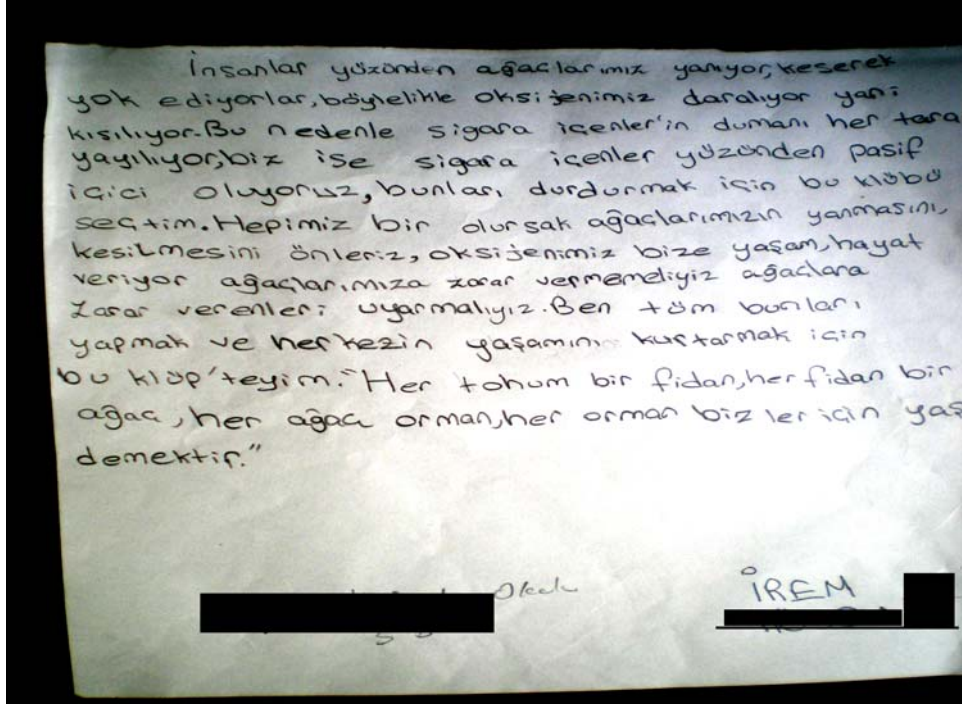 İnsanlar yüzünden ağaçlarımız yanıyor, keserek
yok ediyorlar, böylelikle oksijenimiz daralıyor yani
kısılıyor. Bu nedenle sigara içenler'in dumanı her tara
yayılıyor, biz ise sigara içenler yüzünden pasif
içici oluyoruz, bunları durdurmak için bu klübü
seçtim. Hepimiz bir olursak ağaçlarımızın yanmasını,
kesilmesini önleriz, oksijenimiz bize yaşam, hayat
veriyor ağaçlarımıza zarar vermemeliyiz ağaçlara
zarar verenleri uyarmalıyız. Ben tüm bunları
yapmak ve herkezin yaşamını kurtarmak için
bu klüp'teyim. "Her tohum bir fidan, her fidan bir
ağaç, her ağaç orman, her orman bizler için yaş
demektir."
Okulu
İREM